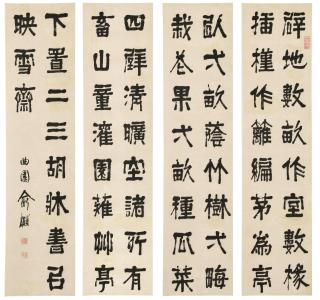 辟地數畝作室數椽
插槿作籬編茅為亭
以弌畝蔭竹樹弌畮
栽花果弍畝種瓜菜
四壁清曠空諸所有
畜山童灌園薙艸亭
下置二三胡牀書
映雪齋
曲園俞樾